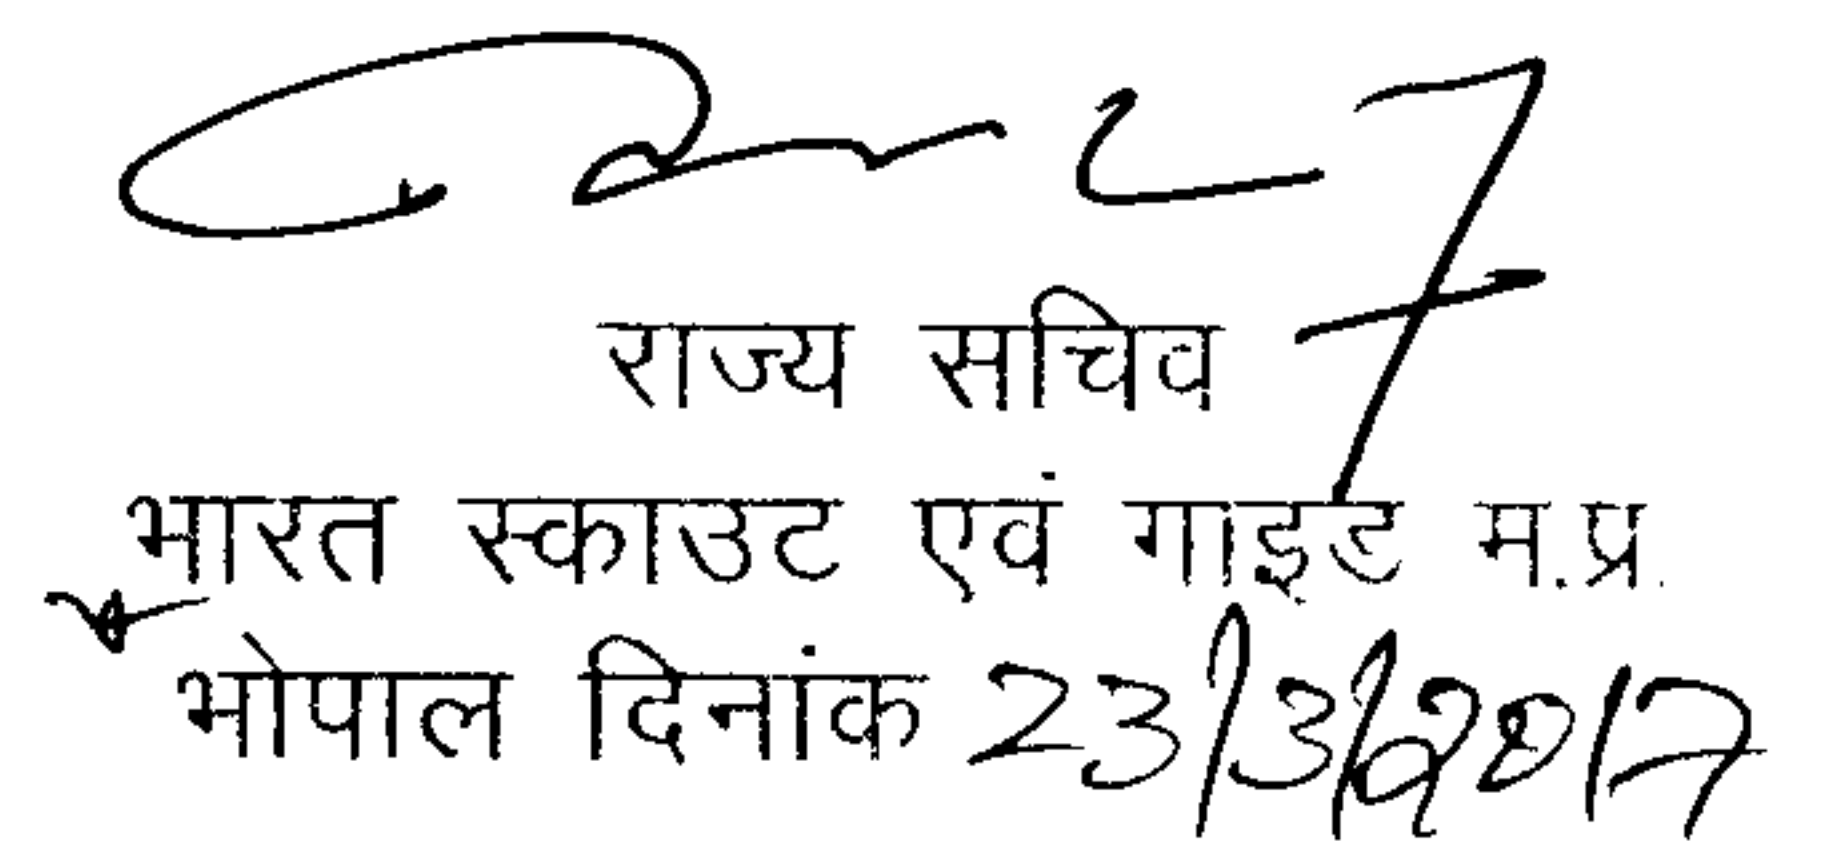 राज्य सचिव
भारत स्काउट एवं गाइड म.प्र.
भोपाल दिनांक 23/3/2017